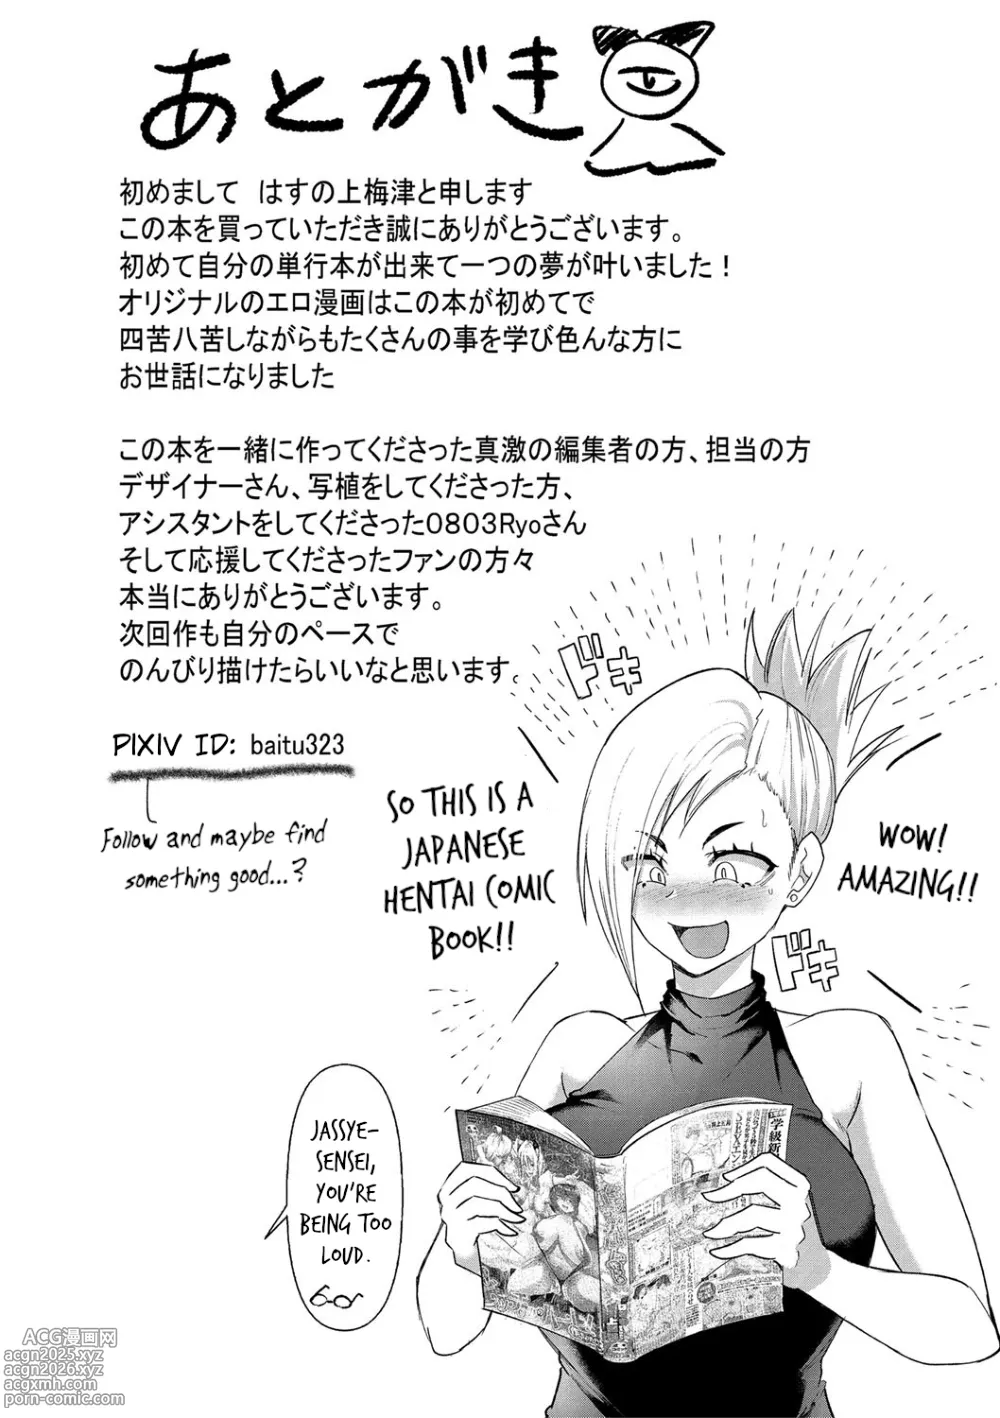 あとがき
初めまして　はすの上梅津と申します
この本を買っていただき誠にありがとうございます。
初めて自分の単行本が出来て一つの夢が叶いました！
オリジナルのエロ漫画はこの本が初めてで
四苦八苦しながらもたくさんの事を学び色んな方に
お世話になりました
この本を一緒に作ってくださった真激の編集者の方、担当の方
デザイナーさん、写植をしてくださった方、
アシスタントをしてくださった0803Ryoさん
そして応援してくださったファンの方々
本当にありがとうございます。
次回作も自分のペースで
のんびり描けたらいいなと思います。
PIXIV ID: baitu323
Follow and maybe find
something good...?
ドキ
SO THIS IS A
JAPANESE
HENTAI COMIC
BOOK!!
WOW!
AMAZING!!
ドキ
JASSYE-
SENSEI,
YOU'RE
BEING TOO
LOUD.
学級新
ACG漫画网
acgn2025.xyz
acgn2026.xyz
acgxmh.com
porn-comic.com